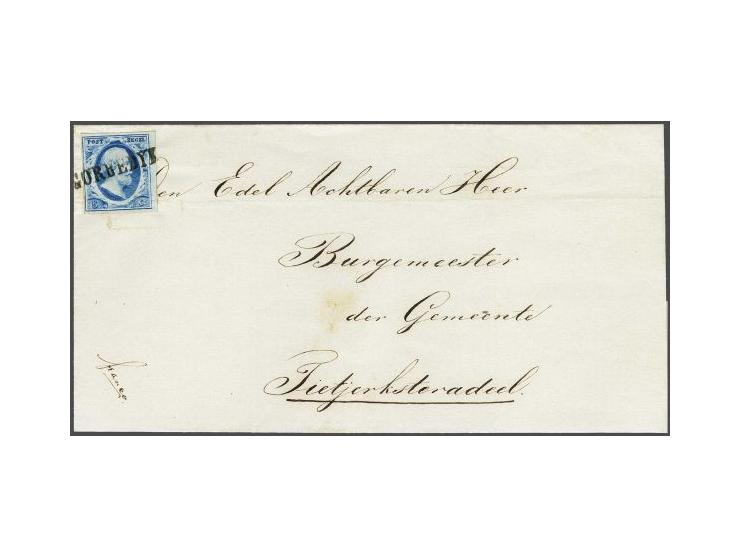 POST ZEGEL
GORREDYK
Den Edel Achtbaren Heer
Burgemeester
der Gemeente
Tietjerksteradeel.
franco